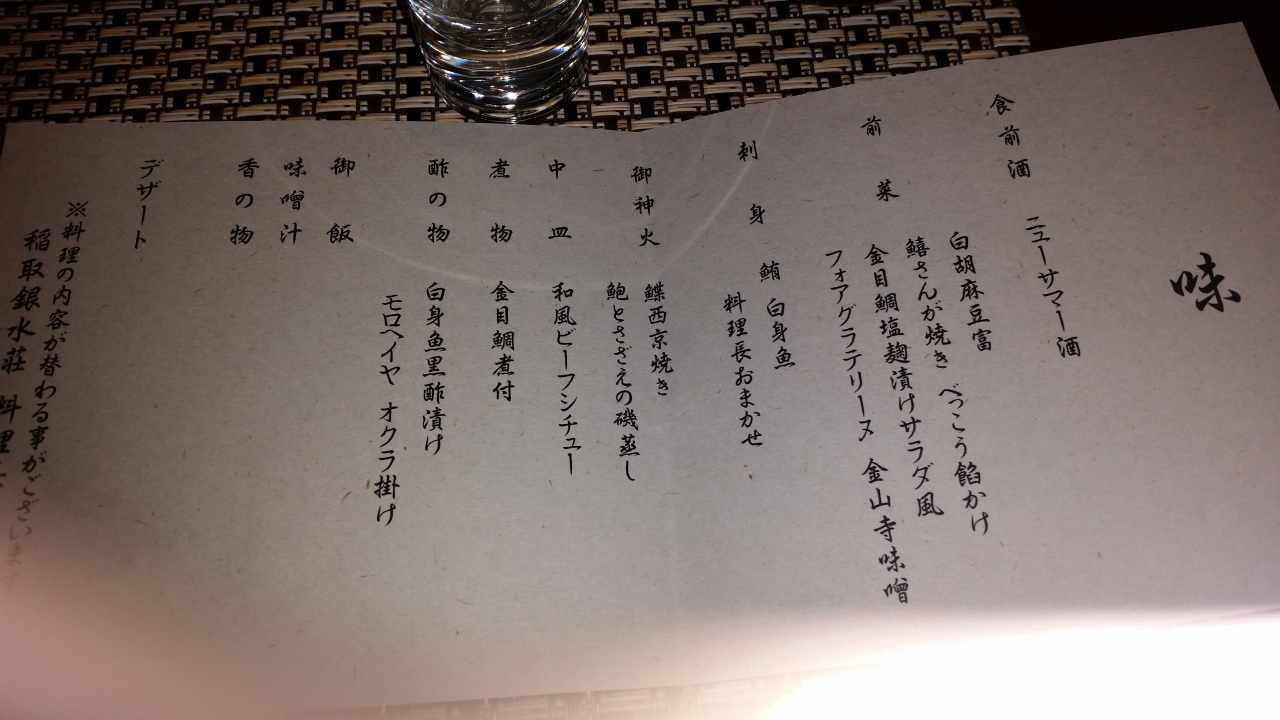 味
食前酒 ニューサマー酒
前菜 白胡麻豆富 べっこう餡かけ
鱚さんが焼き
金目鯛塩麹漬けサラダ風
フォアグラテリーヌ 金山寺味噌
刺身 鮪 白身魚
料理長おまかせ
御神火 鰈西京焼き
鮑とさざえの磯蒸し
中皿 和風ビーフシチュー
煮物 金目鯛煮付
酢の物 白身魚黒酢漬け
モロヘイヤ オクラ掛け
御飯
味噌汁
香の物
デザート
※料理の内容が替わる事がございま
稲取銀水荘 料理